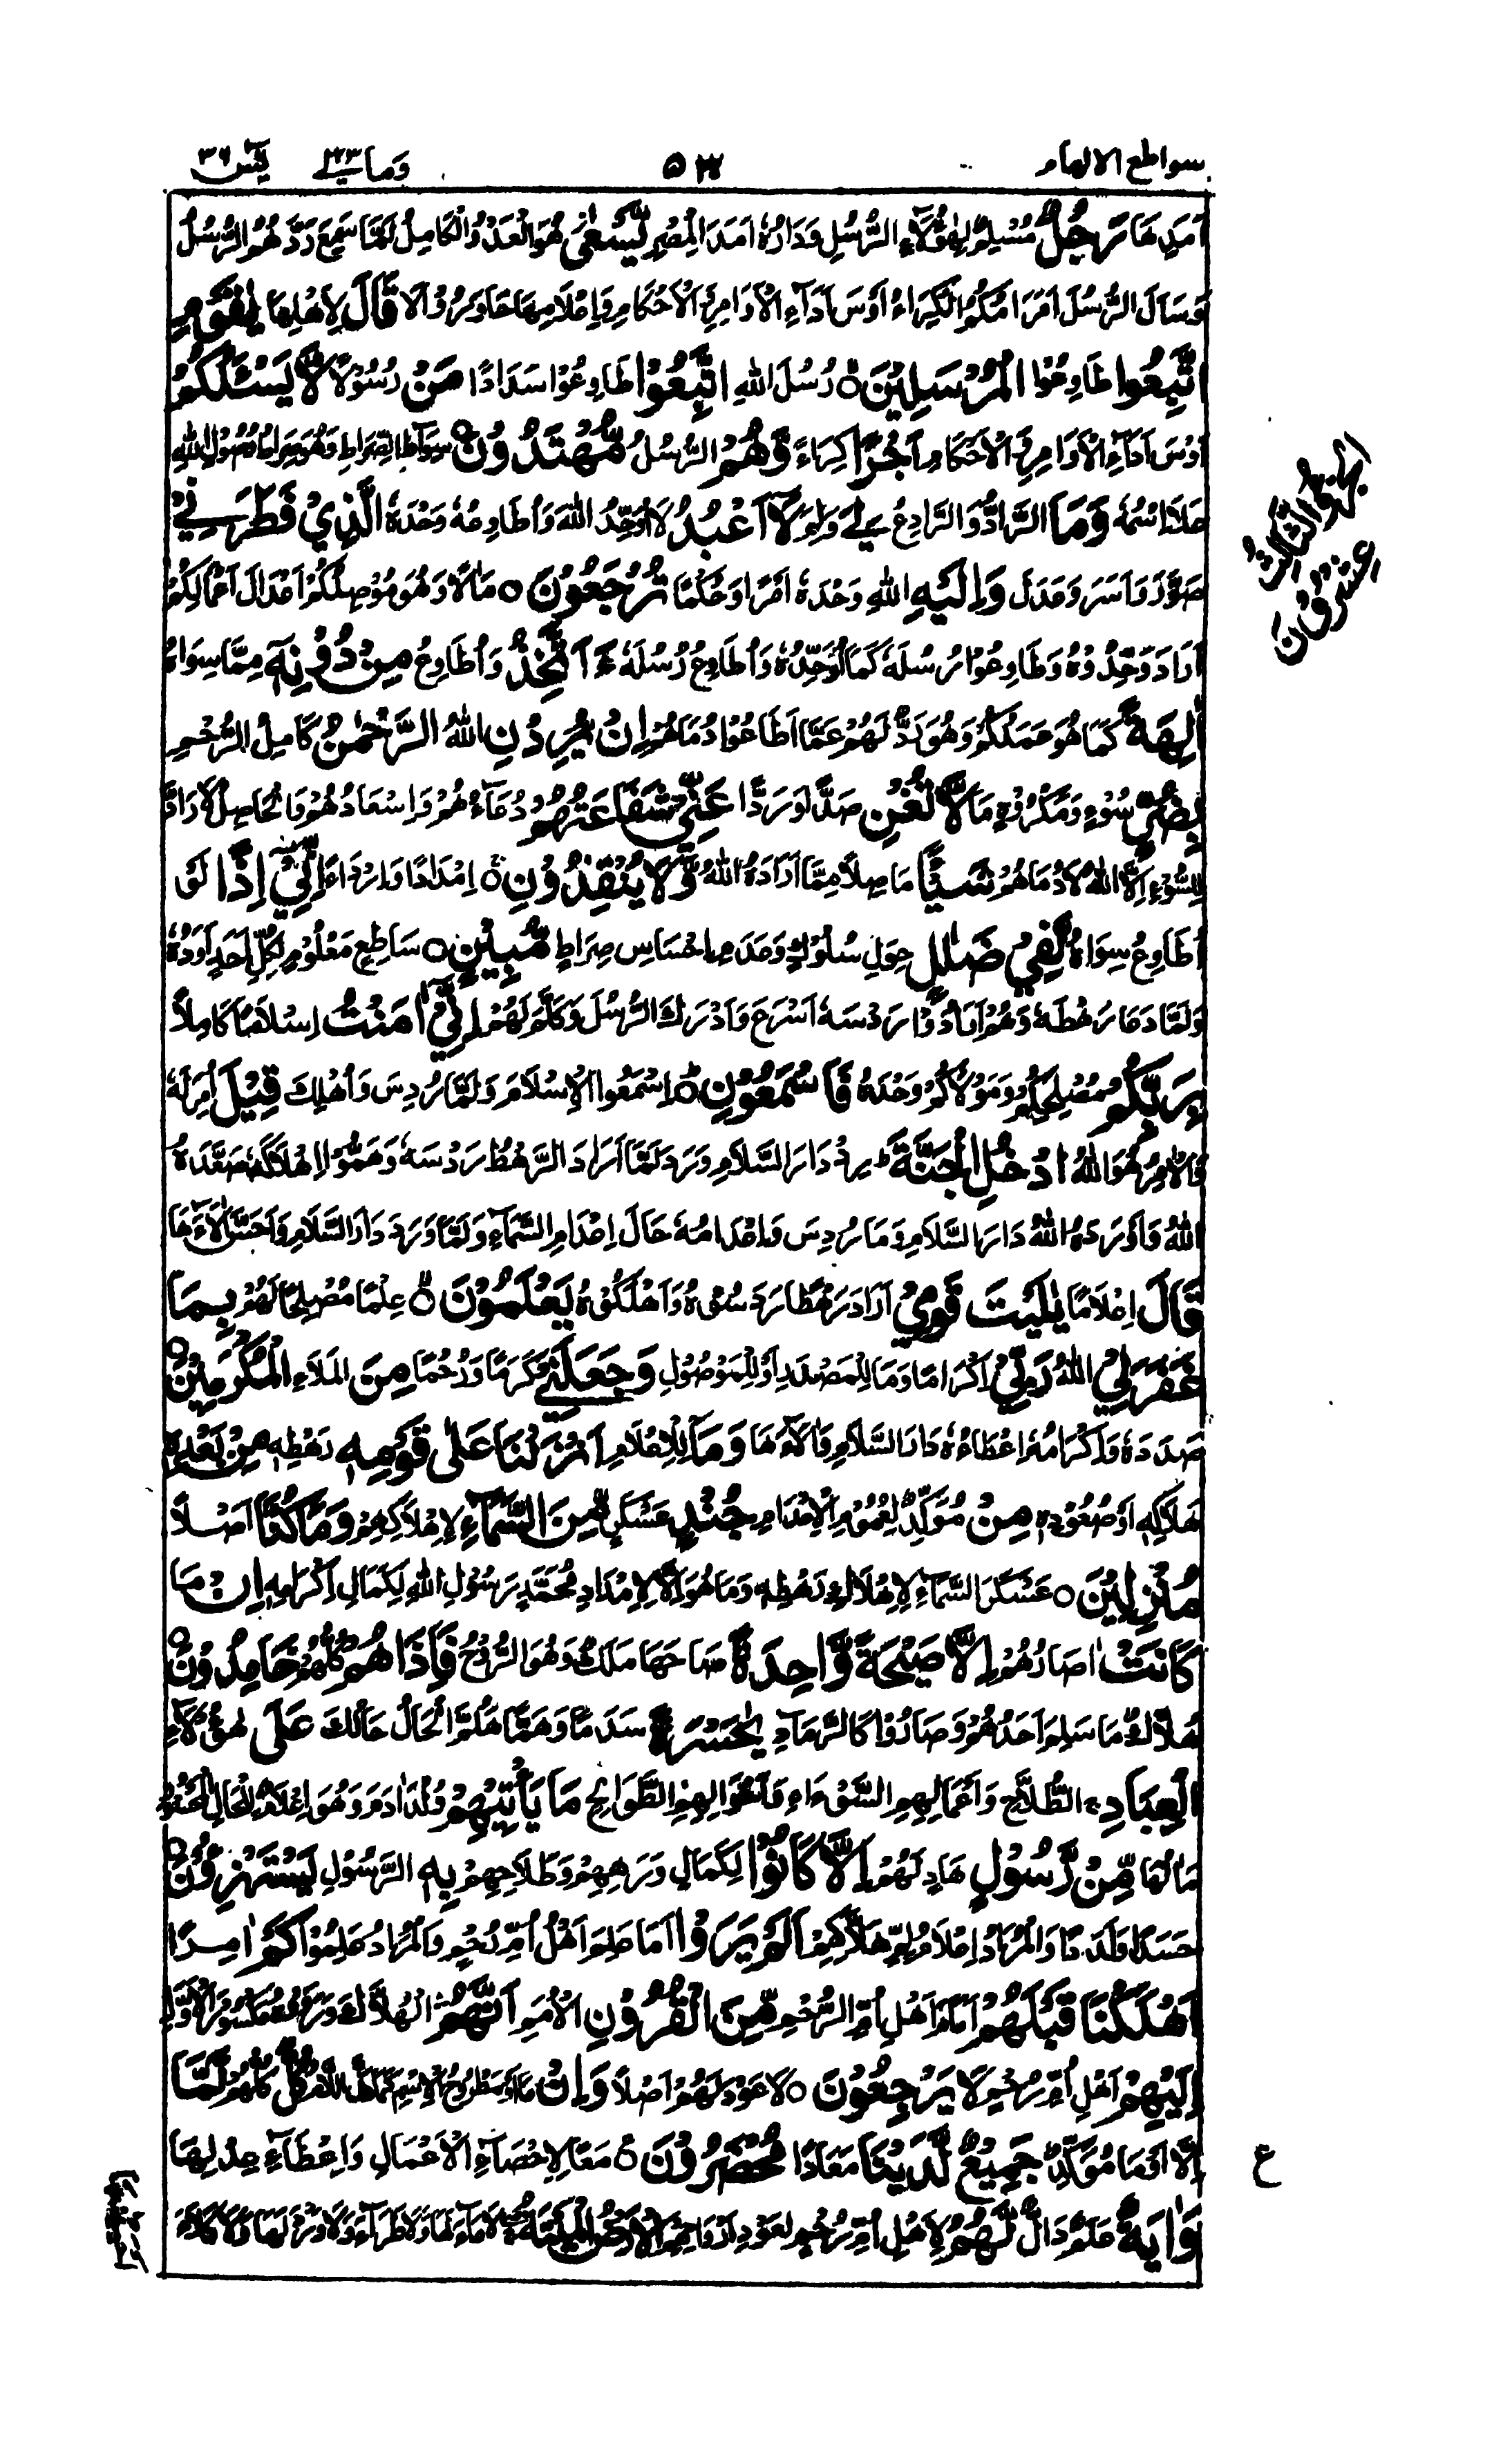 سواطع الالهام ٥٣٢ وما لي ٢٣ يس ٣٦
اَمَدِهَا رَجُلٌ مُسْلِمٌ لِهٰؤُلَاءِ الرُّسُلِ وَدَارُهٗ اَمَدَ الْمِصْرِ يَّسْعٰى هُوَ الْعَدْوُ الْكَامِلُ لَمَّا سَمِعَ رَدَّهُمُ الرُّسُلَ
وَسَاَلَ الرُّسُلَ اَمْرَامُكُمُ الْكِرَاءُ اَوْسَ اَدَاءِ الْاَوَامِرِ وَالْاَحْكَامِ وَاِعْلَامِهَا حَاوَرُوْا لَا قَالَ لِاَهْلِهَا يٰقَوْمِ
اتَّبِعُوا طَاوِعُوْا الْمُرْسَلِيْنَ ۝ رُسُلَ اللهِ اتَّبِعُوْا طَاوِعُوْا سَدَادًا مَنْ رُسُوْلًا لَّا يَسْـَٔلُكُمْ
اَوْسَ اَدَاءِ الْاَوَامِرِ وَالْاَحْكَامِ اَجْرًا كِرَاءً وَّهُمْ الرُّسُلُ مُّهْتَدُوْنَ ۝ سِوَاءَ الصِّرَاطِ وَهُوَ صِرَاطُ وُصُوْلِ اللهِ
عَلَا اسْمُهٗ وَمَا الرَّادُّ وَالرَّادِعُ لِيَ وَلِمَ لَا اَعْبُدُ لَا اُوَحِّدُ اللهَ وَاُطَاوِعُهٗ وَحْدَهٗ الَّذِيْ فَطَرَنِيْ
صَوَّرَ وَاَسَرَ وَعَدَلَ وَاِلَيْهِ اللهِ وَحْدَهٗ اَمْرًا وَحُكْمًا تُرْجَعُوْنَ ۝ مَاٰلًا وَهُوَ مُوْصِلُكُمْ اَعْدَالَ اَعْمَالِكُمْ
اَرَادَ وَحِّدُوْهُ وَطَاوِعُوْا رُسُلَهٗ كَمَا اُوَحِّدُهٗ وَاُطَاوِعُ رُسُلَهٗ ءَاَتَّخِذُ وَاُطَاوِعُ مِنْ دُوْنِهٖٓ مِمَّا سِوَاهُ
اٰلِهَةً كَمَا هُوَ عَمَلُكُمْ وَهُوَ رَدٌّ لَهُمْ عَمَّا اَطَاعُوْا دُمَاهُمْ اِنْ يُّرِدْنِ اللهُ الرَّحْمٰنُ كَامِلُ الرُّحْمِ
بِضُرٍّ سُوْءٍ وَمَكْرُوْهٍ مَا لَّا تُغْنِ صَدًّا وَرَدًّا عَنِّيْ شَفَاعَتُهُمْ دُعَاءُهُمْ وَاِسْعَادُهُمْ وَالْحَاصِلُ لَا رَادَّ
لِلسُّوْءِ اِلَّا اللهُ لَا دُمَاهُمْ شَيْـًٔا مَا صِلًا مِمَّا اَرَادَهُ اللهُ وَّلَا يُنْقِذُوْنِ ۝ اِمْدَادًا وَاِرْدَاءً اِنِّيْٓ اِذًا لَوْ
اُطَاوِعُ سِوَاهُ لَّفِيْ ضَلٰلٍ حِوَلِ سُلُوْكٍ وَعَدَمِ اِحْسَاسِ صِرَاطٍ مُّبِيْنٍ ۝ سَاطِعٍ مَعْلُوْمٍ لِكُلِّ اَحَدٍ اَوَدُّهٗ
وَلَمَّا دَعَا رَهْطَهٗ وَهُمْ اَرَادُوْا رَدْسَهٗ اَسْرَعَ وَاَدْرَكَ الرُّسُلَ وَكَلَّمَ لَهُمْ اِنِّيْٓ اٰمَنْتُ اِسْلَامًا كَامِلًا
بِرَبِّكُمْ مُصْلِحِكُمْ وَمَوْلَاكُمْ وَحْدَهٗ فَاسْمَعُوْنِ ۝ اِسْمَعُوا الْاِسْلَامَ وَلَمَّا رُدِسَ وَاُهْلِكَ قِيْلَ اُمِرَ لَهٗ
وَالْاٰمِرُ هُوَ اللهُ ادْخُلِ الْجَنَّةَ ؕ رِدْ دَارَ السَّلَامِ وَرَدَ لَمَّا اَرَادَ الرَّهْطُ رَدْسَهٗ وَهَمُّوْا اِهْلَاكَهٗ صَعَّدَهُ
اللهُ وَاَوْرَدَهُ اللهُ دَارَ السَّلَامِ وَمَا رُدِسَ وَاِعْدَامُهٗ حَالَ اِعْدَامِ السَّمَاءِ وَلَمَّا وَرَدَ دَارَ السَّلَامِ وَاَحَسَّ اٰلَاءَهَا
قَالَ اِعْلَامًا يٰلَيْتَ قَوْمِيْ اَرَادَ رَهْطًا رَدَسُوْهُ وَاَهْلَكُوْهُ يَعْلَمُوْنَ ۝ عِلْمًا مُصْلِحًا لَهُمْ بِمَا
غَفَرَ لِيْ اللهُ رَبِّيْ اِكْرَامًا وَمَا لِلْمَصْدَرِ اَوْ لِلْمَوْصُوْلِ وَجَعَلَنِيْ كَرَمًا وَرُحْمًا مِنَ الْمَلَاءِ الْمُكْرَمِيْنَ ۝
صَدَدَهٗ وَاِكْرَامُهٗ اِعْطَاءُهٗ دَارَ السَّلَامِ وَاٰلَاءَهَا وَمَآ لِلْاِعْلَامِ اَنْزَلْنَا عَلٰى قَوْمِهٖ رَهْطِهٖ مِنْ بَعْدِهٖ
هَلَاكِهٖ اَوْ صُعُوْدِهٖ مِنْ مُؤَكِّدٌ لِعُمُوْمِ الْاِعْدَامِ جُنْدٍ عَسْكَرٍ مِّنَ السَّمَآءِ لِاِهْلَاكِهِمْ وَمَا كُنَّا اَصْلًا
مُنْزِلِيْنَ ۝ عَسْكَرَ السَّمَاءِ لِاِهْلَاكِ رَهْطِهٖ وَمَا هُوَ اِلَّا لِاِمْدَادِ مُحَمَّدٍ رَسُوْلِ اللهِ لِكَمَالِ اِكْرَامِهٖ اِنْ مَا
كَانَتْ اَصَارُهُمْ اِلَّا صَيْحَةً وَّاحِدَةً صَاحَهَا مَلَكٌ وَهُوَ الرُّوْحُ فَاِذَا هُمْ كُلُّهُمْ خَامِدُوْنَ ۝
هُلَّاكٌ مَا سَلِمَ اَحَدُهُمْ وَصَارُوْا كَالرَّمَادِ يٰحَسْرَةً سَدَمًا وَهَمًّا هَلُمَّ الْحَالُ حَالُكَ عَلَى هٰؤُلَاءِ
الْعِبَادِ ۚ الطُّلَّاحِ وَاَعْمَالِهِمِ السَّوْءَاءِ وَاَحْوَالِهِمِ الطَّوَالِحِ مَا يَاْتِيْهِمْ وُلْدَ اٰدَمَ وَهُوَ اِعْلَامٌ لِحَالٍ
مَاٰلُهَا مِّنْ رَّسُوْلٍ هَادٍ لَهُمْ اِلَّا كَانُوْا لِكَمَالِ وَرَهِهِمْ وَطَلَاحِهِمْ بِهٖ الرَّسُوْلِ يَسْتَهْزِءُوْنَ ۝
حَسَدًا وَلَدَدًا وَالْمُرَادُ اِعْلَامُ لِمَ هَلَاكِهِمْ اَلَمْ يَرَوْا اَمَا عَلِمَ اَهْلُ اُمِّ رُحْمٍ وَالْمُرَادُ عَلِمُوْا كَمْ اٰمِدًا
اَهْلَكْنَا قَبْلَهُمْ اَمَامَ اَهْلِ اُمِّ الرُّحْمِ مِّنَ الْقُرُوْنِ الْاُمَمِ اَنَّهُمْ الْهُلَّاكَ وَرَوَوْهُ مَكْسُوْرَ الْاَوَّلِ
اِلَيْهِمْ اَهْلِ اُمِّ رُحْمٍ لَا يَرْجِعُوْنَ ۝ لَا عَوْدَ لَهُمْ اَصْلًا وَاِنْ كُلٌّ كُلُّهُمْ لَّمَّا
اِلَّا اَوْ مَا مُؤَكِّدٌ جَمِيْعٌ لَّدَيْنَا مَعَادًا مُحْضَرُوْنَ ۝ مَعًا لِاِحْصَاءِ الْاَعْمَالِ وَاِعْطَاءِ عِدْلِهَا
وَاٰيَةٌ عَلَمٌ دَالٌّ لَّهُمُ لِاَهْلِ اُمِّ رُحْمٍ لِعَوْدِ اَرْوَاحِهِمُ الْاَرْضُ الْمَيْتَةُ
الجزو الثالث
عشرون
ع